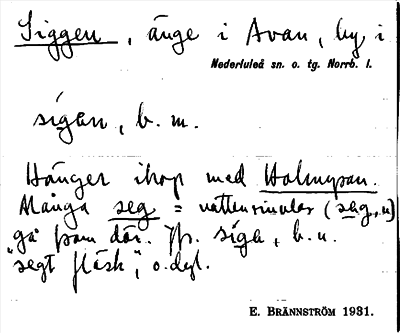 Siggen, änge i Avan, by i
Nederluleå sn. o. tg. Norrb. l.
sigan, b. m.
Hänger ihop med Holmgpan.
Många seg = vattensamlar (seg, n)
gå fram där. Jfr. siga, b. n.
"segt fläsk", o.dyl.
E. BRÄNNSTRÖM 1931.